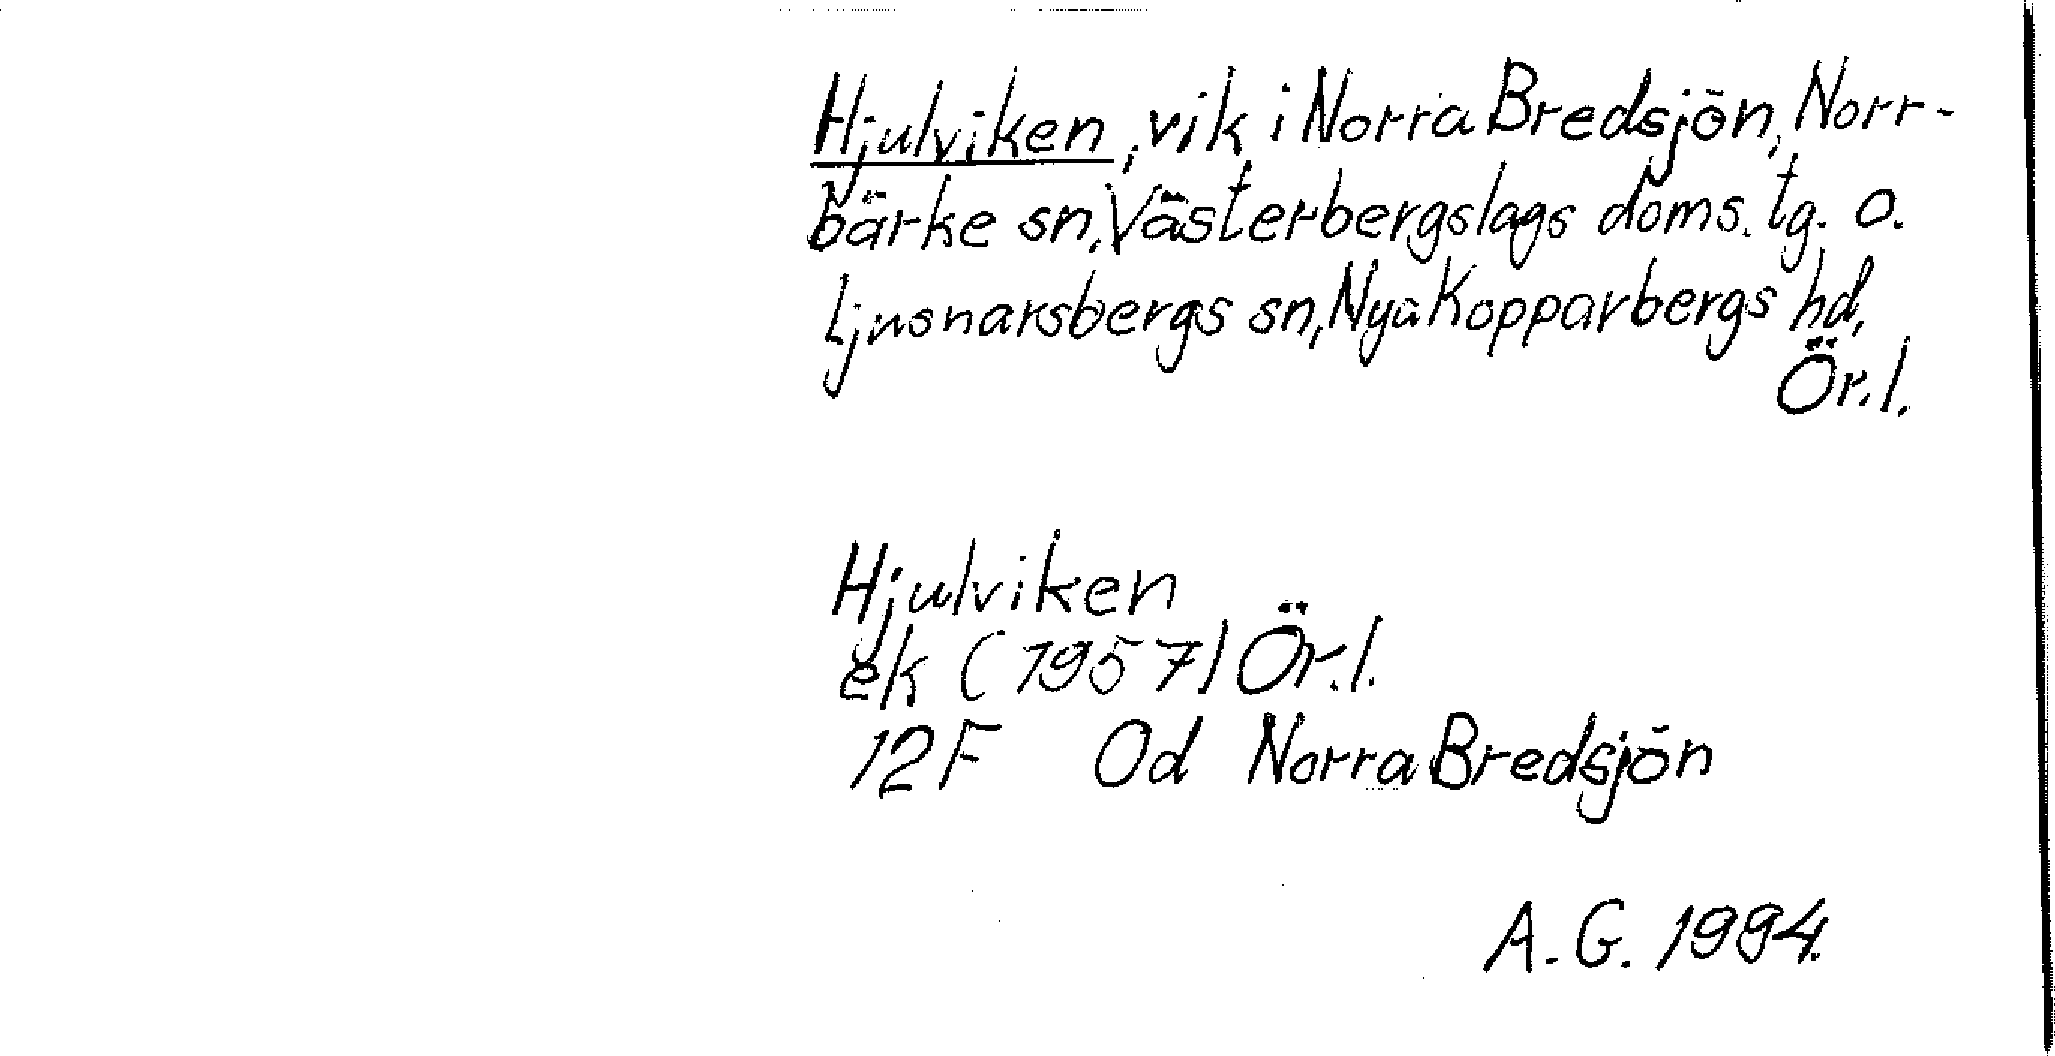 Hjulviken, vik i Norra Bredsjön, Norr-
bärke sn, Västerbergslags doms. tg. o.
Ljusnarsbergs sn, Nya Kopparbergs hd,
Ör.l.
Hjulviken
ek (1957) Ör.l.
12F Od Norra Bredsjön
A.G. 1994.